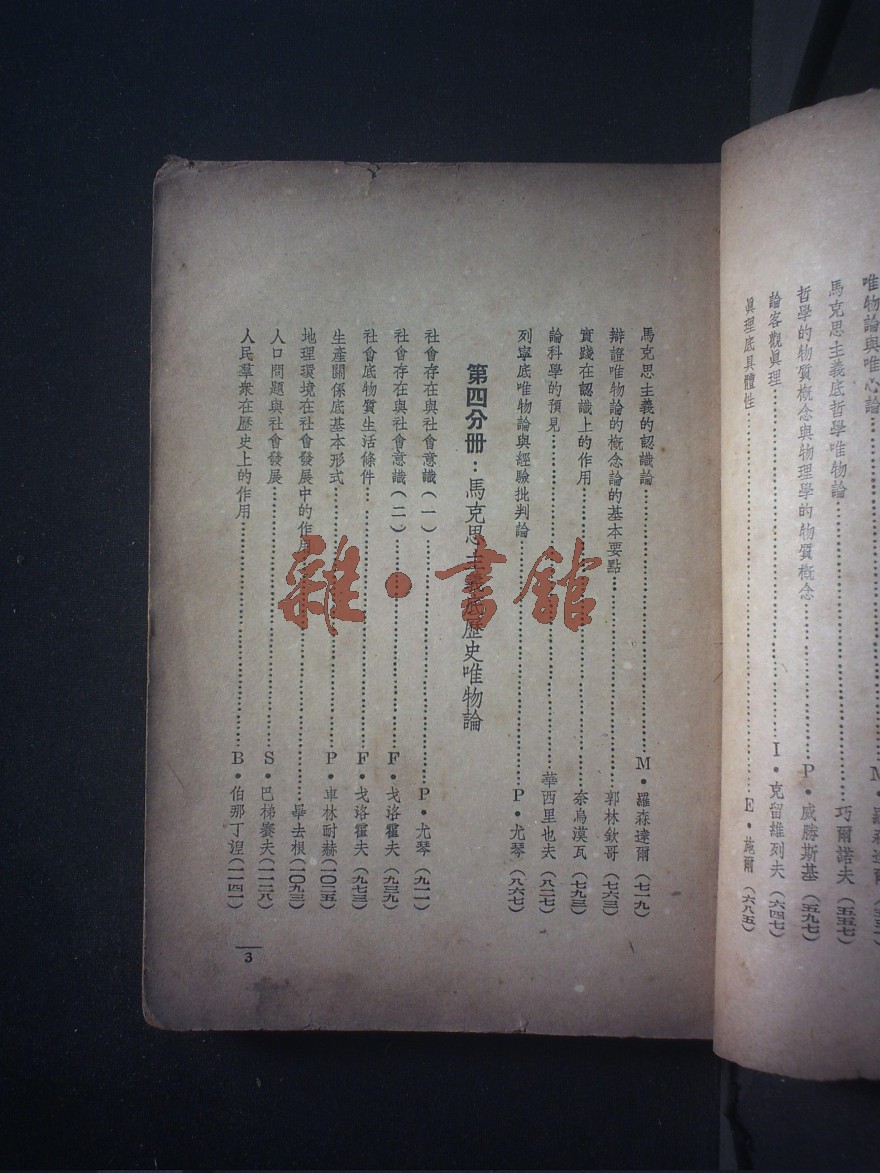 唯物論與唯心論
馬克思主義底哲學唯物論……巧爾諾夫(五五七)
哲學的物質概念與物理學的物質概念……P·威勝斯基(五九七)
論客觀眞理……I·克留維列夫(六四七)
眞理底具體性……E·施爾(六八五)
馬克思主義的認識論……M·羅森達爾(七一九)
辯證唯物論的概念論的基本要點……郭林欽哥(七六三)
實踐在認識上的作用……奈烏漠瓦(七九三)
論科學的預見……華西里也夫(八二七)
列寧底唯物論與經驗批判論……P·尤琴(八六七)
第四分册:馬克思主義底歷史唯物論
社會存在與社會意識(一)……P·尤琴(九一一)
社會存在與社會意識(二)……F·戈洛霍夫(九三九)
社會底物質生活條件……F·戈洛霍夫(九七三)
生產關係底基本形式……P·車林耐赫(一〇二五)
地理環境在社會發展中的作用……畢去根(一〇九三)
人口問題與社會發展……S·巴梯賽夫(一一二八)
人民羣衆在歷史上的作用……B·伯那丁湼(一一四一)
3
雜·書舘